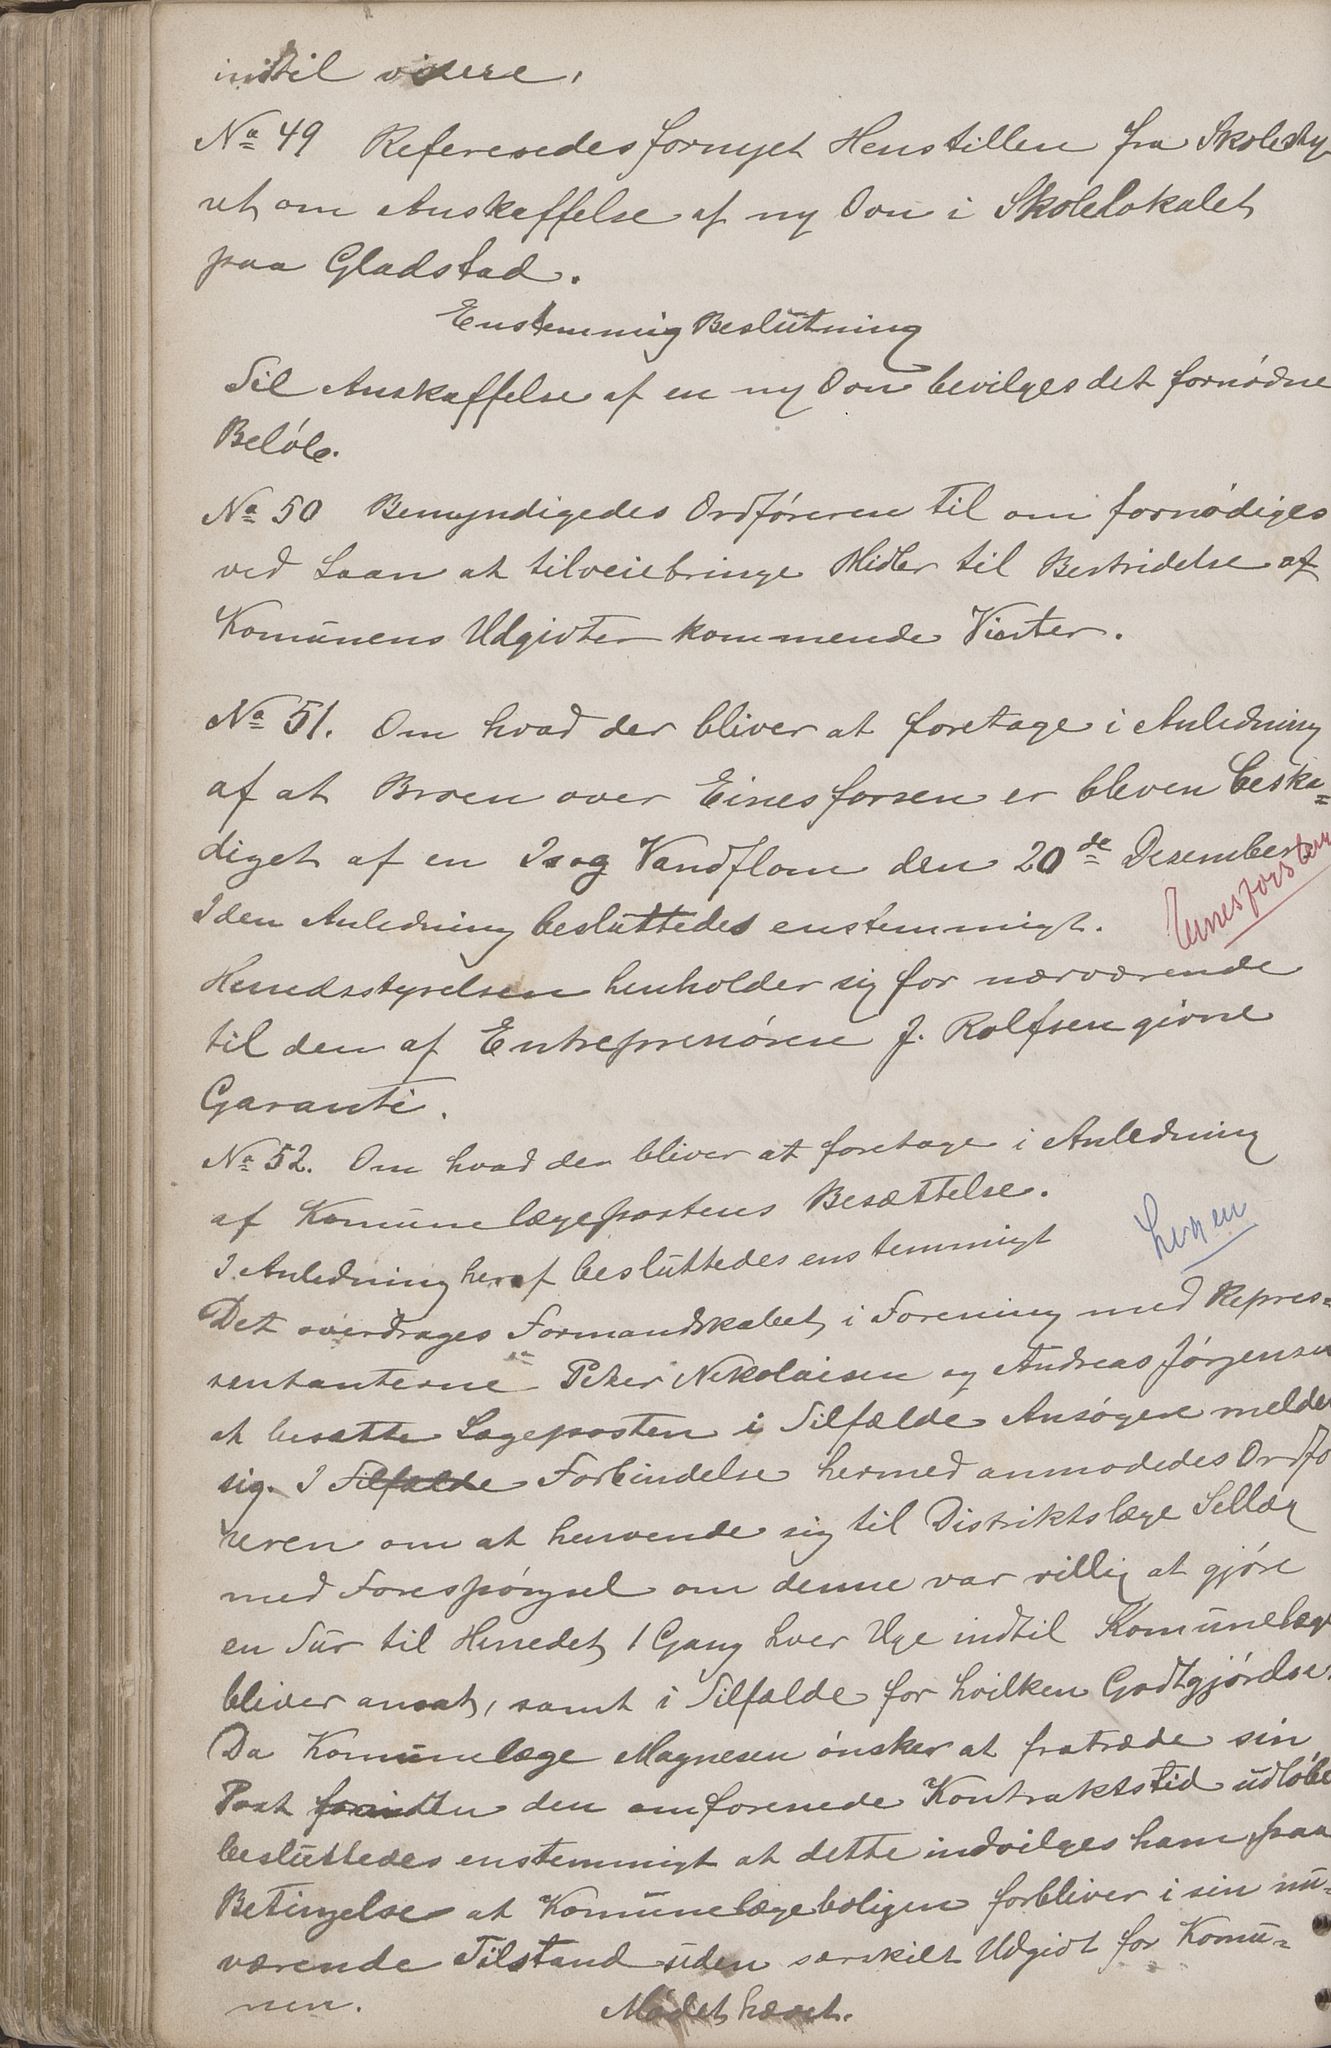 indtil videre.
No 49 Referedes fornyet Henstillen fra Skolesty-
ret om Anskaffelse af ny Ovn i Skolelokalet
paa Gladstad.
Enstemmig Beslutning
Til Anskaffelse af en ny Ovn bevilges det fornødne
Beløb.
No 50 Bemyndigedes Ordføreren til om fornødiges
ved Laan at tilveiebringe Midler til Bestridelse af
Komunens Udgivter kommende Vinter.
No 51. Om hvad der bliver at foretage i Anledning
af at Broen over Einesforsen er bleven beska=
diget af en Is og Vandflom den 20de Desember
I den Anledning besluttedes enstemmigt.
Herredsstyrelsen henholder sig for nærværende
til den af Entreprenøren J. Rolfsen givne
Garanti.
No 52. Om hvad der bliver at foretage i Anledning
af Komunelægepostens Besættelse.
Lægen
I Anledning heraf besluttedes enstemmigt
Det overdrages Formandskabet i Forening med Repres=
sentanterne Peter Nikolaisen og Andreas Jørgensen
at besætte Lægeposten i Tilfælde Ansøgere melder
sig. I Tilfælde Forbindelse hermed anmodedes Ordfø
reren om at henvende sig til Distriktslæge Selläg
med Forespørgsel om denne var villig at gjøre
en Tur til Herredet 1 Gang hver Uge indtil Komunelæge
bliver ansat, samt i Tilfælde for hvilken Godtgjørelse.
Da Komunelæge Magnesen ønsker at fratræde sin
Post forinden den omforenede Kontraktstid udløber
besluttedes enstemmigt at dette indvilges ham paa
Betingelse at Komunelægeboligen forbliver i sin nu=
værende Tilstand uden særskilt Udgivt for Komu=
nen.
Mødet hævet.